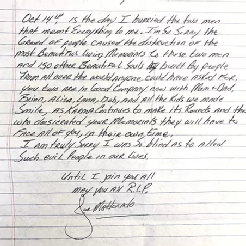 Oct 14th is the day I buried the two men
that meant Everything to me. I'm so sorry the
Greed of people caused the distruction of the
most Beautiful living Memorials to these two men
and 150 other Beautiful Souls built by people
Than all over the world anyone could have asked for.
you two are in Good Company now with Mom + Dad,
Brian, Alisa, Lynn, Deb, and all the Kids we made
Smile, as Karma Continues to make its Rounds and those
who desicrated your Memorials they will have to
Face all of you, in their own time.
I am truly sorry I was so blind as to allow
Such evil People in our lives.
Until I join you all
may you all R.I.P.